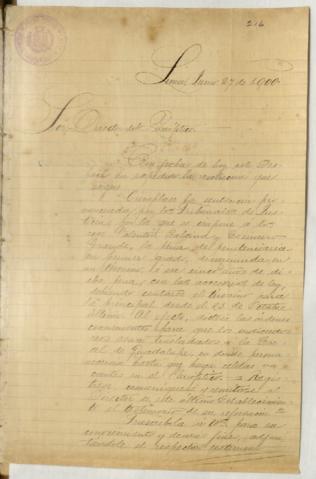 216
Lima, Junio 27 de 1900.
Sor. Director del Panóptico
Con fecha de hoy este Des-
pacho ha expedido la resolución que
sigue:
"Cúmplase la sentencia pro-
nunciada por los Tribunales de Jus-
ticia, por la que se impone a los
reos
Grande, la pena de penitenciaría
en primer grado,
término, o sea cinco años de di-
cha pena, con las accesorias de ley,
debiendo contarse el término para
la principal desde el 13 de Octubre
último. Al efecto, díctese las órdenes
convenientes para que los indicados
reos sean trasladados a la Cár-
cel de Guadalupe, en donde perma-
necerán hasta que haya celdas va-
cantes en el Panóptico. Regís-
trese, comuníquese y remítase al
Director de este último Establecimien-
to el testimonio de su referencia"
Trascríbola a Ud. para su
conocimiento y demás fines, adjun-
tándole el respectivo testimonio